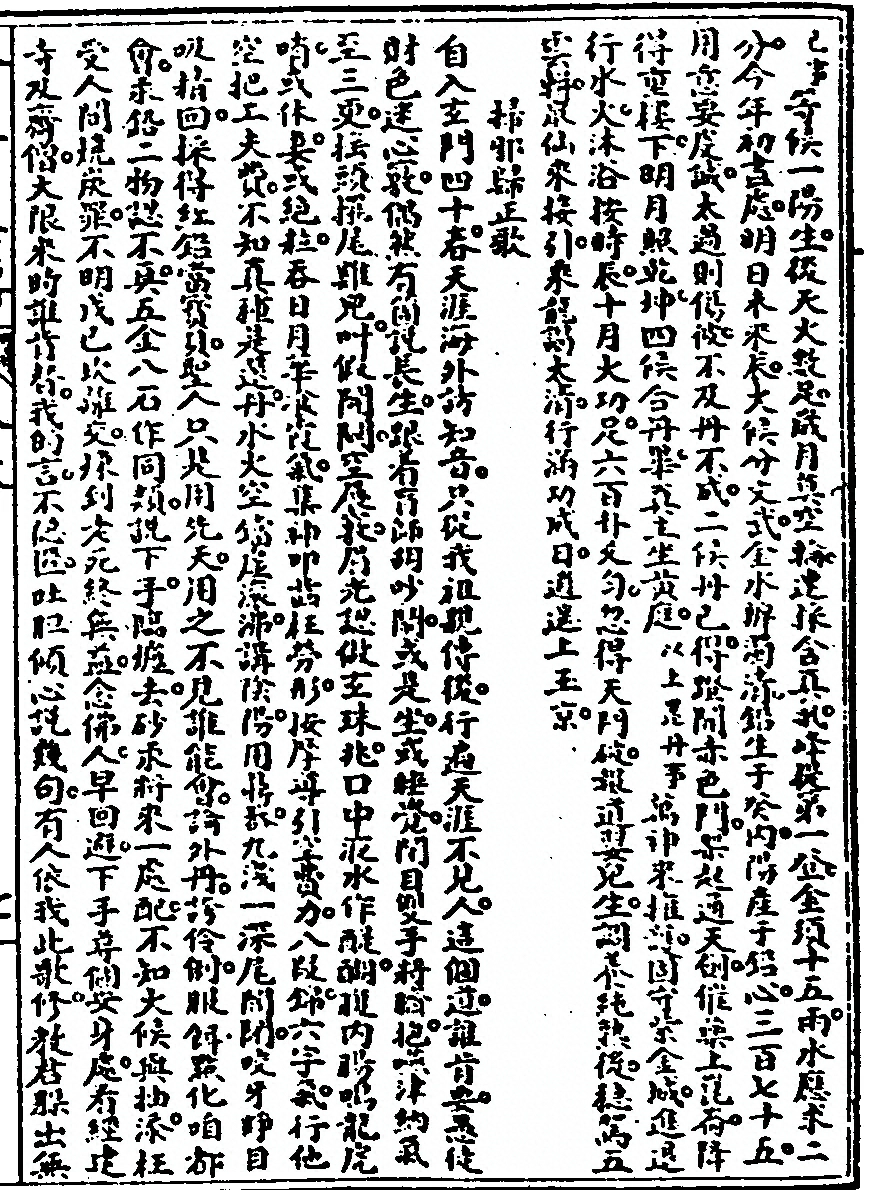 等候一陽生後天火數足歲月真空輪運採含真氣降從第一盆金須十五兩水應求二
分今年初盡處明日未來辰火候分文武金水辨濁清鉛生于癸內陽産于鉛心三百七十五
用意要虔誠太過則傷彼不及丹不成二候丹已得踏開赤色門架起通天劍催藥上崑崙降
得重樓下明月照乾坤四候合丹畢真主坐黃庭以上是丹事萬神來擁護固守紫金城進退
行水火沐浴按時辰十月火功足六百卦爻勻忽得天門破報道嬰兒生調養純熟後穩駕五
雲軿衆仙來接引乘龍謁太清行滿功成日逍遥上玉京
掃邪歸正歌
自入玄門四十春天涯海外訪知音只從我祖親傳後行遍天涯不見人這個道誰肯要惡徒
財色迷心竅偶然有個説長生跟着盲師胡吵鬧或是坐或睡覺閉目雙手將臍抱嚥津納氣
至三更接頭擺尾雞兒叫做開關空展竅眉光認做玄珠兆口中液水作醍醐腹內腸鳴龍虎
嘯或休妻或絕粒吞日月華滚霞氣集神叩齒枉勞形按摩導引空費力八段錦六字氣行他
空把工夫費不知真種是還丹水火空鐺虛滚沸講陰陽用將敵九淺一深尾閭閉咬牙睜目
吸撮回採得紅鉛當寶貝聖人只是用先天用之不見誰能會論外丹誇伶俐服餌點化咱都
會汞鉛二物認不真五金八石作同類説下手臨爐去砂汞將來一處配不知火候與抽添枉
受人間燒炭罪不明戊己坎離交煉到老死終無益念佛人早回避下手尋個安身處看經建
寺及齋僧大限來時誰肯替我的言不忌諱吐胆傾心説幾句有人依我此歌修教君躲出無